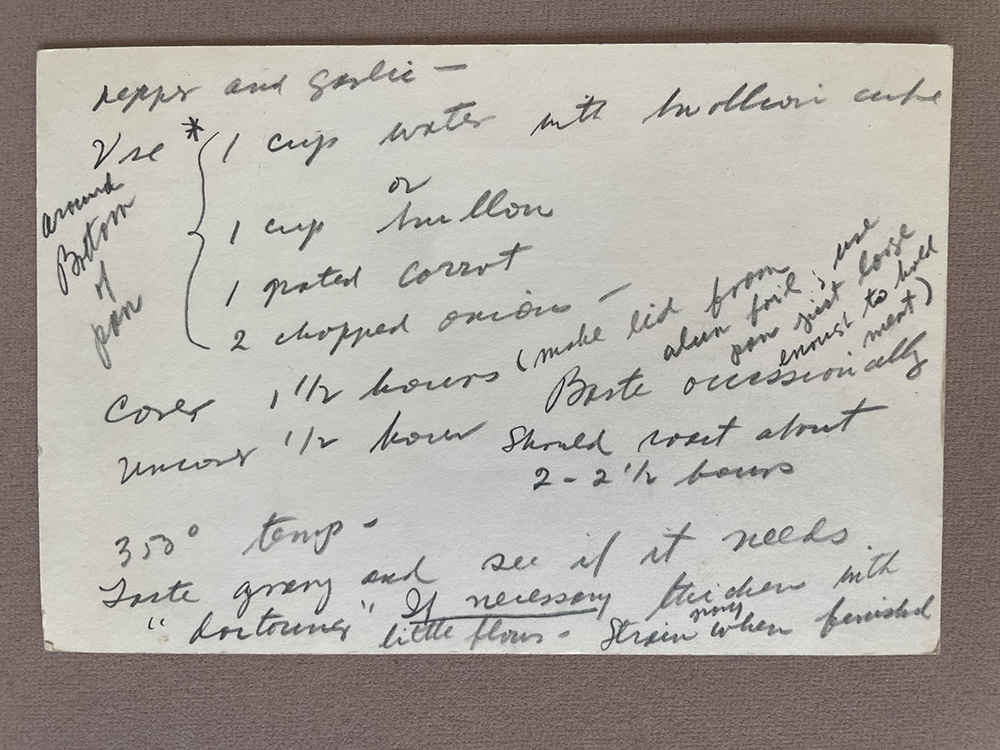 pepper and garlic -
Use * 1 cup water with boullion cube
around
Bottom
of
pan
or
1 cup bullon
1 grated carrot
2 chopped onions -
(make lid from
alum foil, use
pan just large
enough to hold
meat)
Cover 1 1/2 hours
Baste occassionally
Uncover 1/2 hour
Should roast about
2 - 2 1/2 hours
350° temp -
Taste gravy and see if it needs
" " If necessary thicken with
little flour - Strain when finished